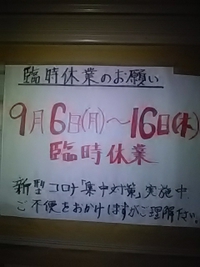 臨時休業のお願い
9月6日(月)～16日(木)
臨時休業
新型コロナ「集中対策」実施中
ご不便をおかけしますがご理解下さい。